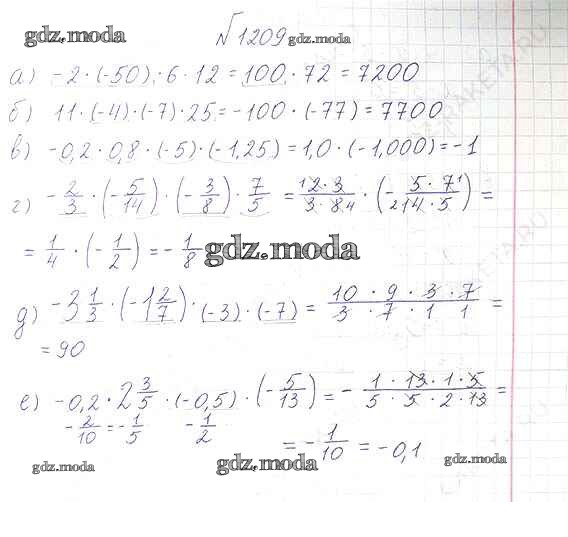 gdz.moda
№1209 gdz.moda
а) -2 · (-50) · 6 · 12 = 100 · 72 = 7200
б) 11 · (-4) · (-7) · 25 = -100 · (-77) = 7700
в) -0,2 · 0,8 · (-5) · (-1,25) = 1,0 · (-1,000) = -1
г) -2/3 · (-5/14) · (-3/8) · 7/5 = 2 · 3 / 3 · 8 4 · (- 5 · 7 1 / 2 14 · 5) =
= 1/4 · (-1/2) = -1/8 gdz.moda
д) -3 1/3 · (-1 2/7) · (-3) · (-7) = 10 · 9 · 3 · 7 / 3 · 7 · 1 1 =
= 90
е) -0,2 · 2 3/5 · (-0,5) · (-5/13) = - 1 · 13 · 1 · 5 / 5 · 5 · 2 · 13 =
-2/10 = -1/5 -1/2
= -1/10 = -0,1
gdz.moda gdz.moda gdz.moda